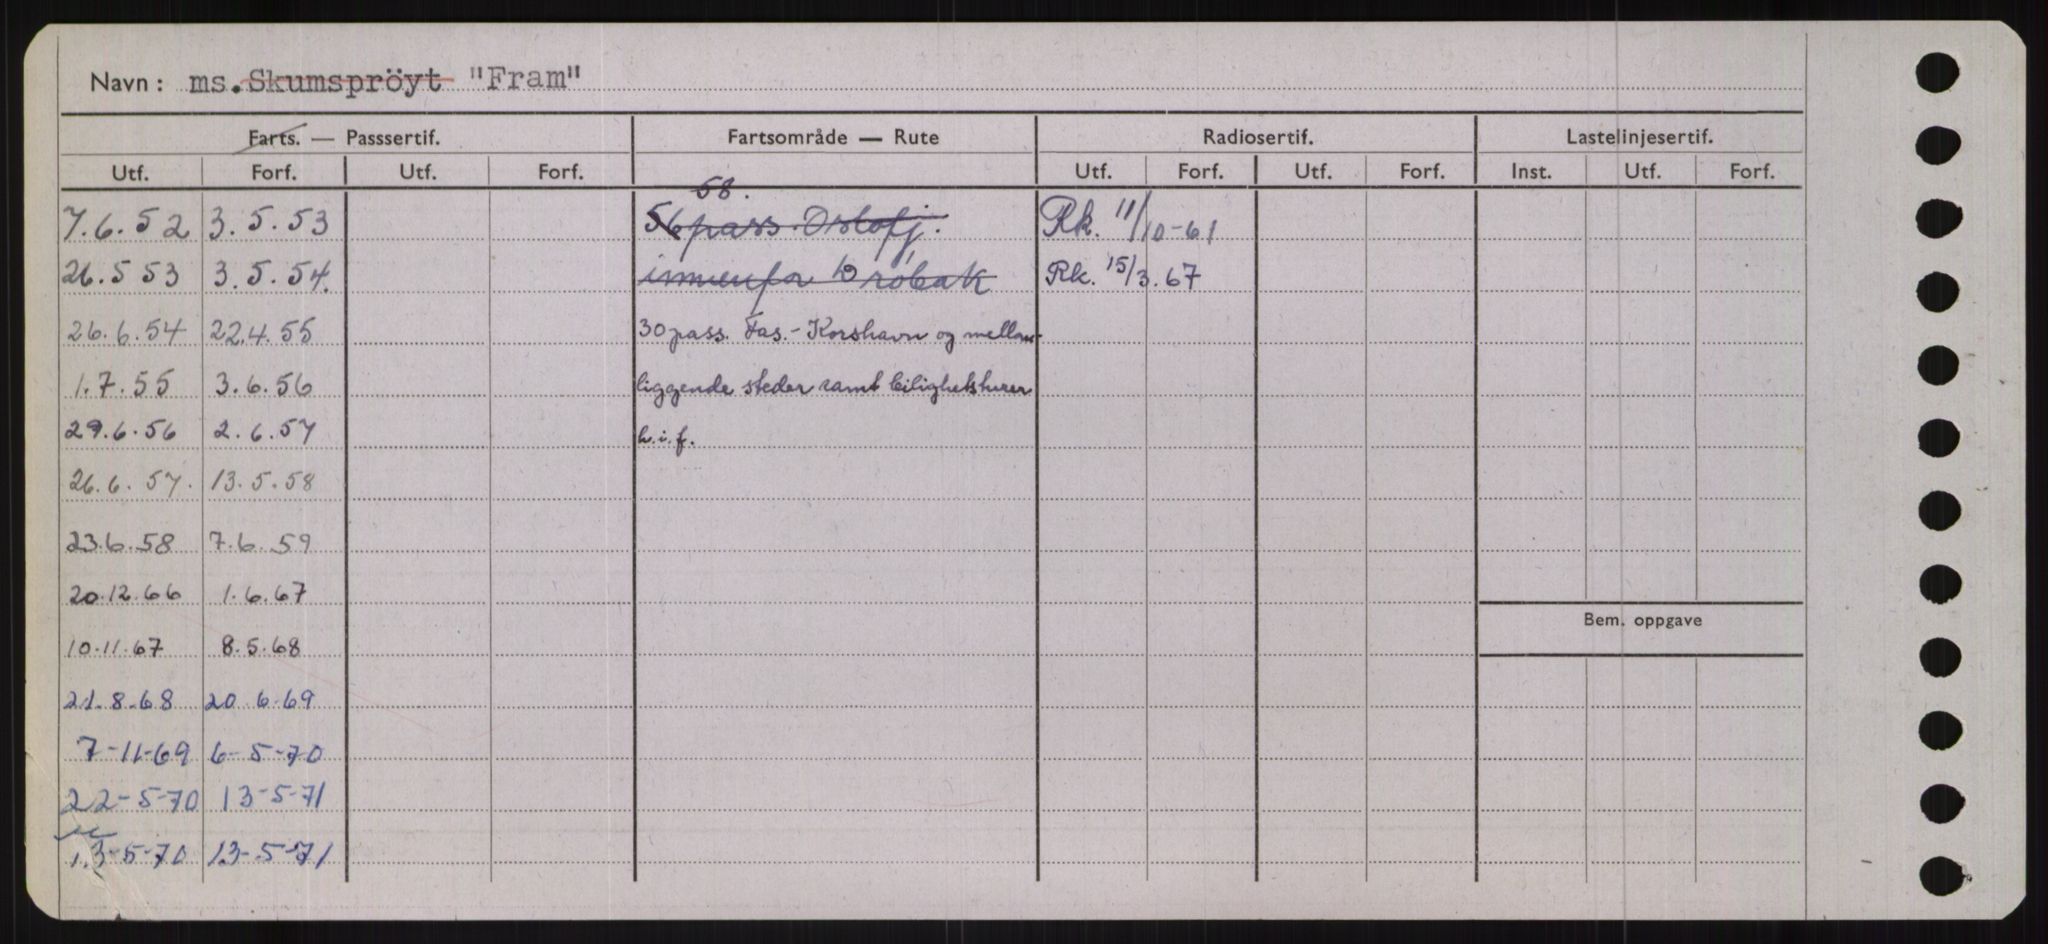 Navn: ms. Skumspröyt "Fram"
Farts. — Passsertif. Fartsområde — Rute Radiosertif. Lastelinjesertif.
Utf. Forf. Utf. Forf. Utf. Forf. Utf. Forf. Inst. Utf. Forf.
58.
7.6.52 3.5.53 56 pass. Oslofj. Rk. 11/10-61
26.5 53 3.5.54. innenfor Dröbak Rk. 15/3.67
26.6.54 22.4.55 30 pass. Fas.- Korshavn og mellom-
1.7.55 3.6.56 liggende steder samt leilighetsturer
29.6.56 2.6.57 h.i.f.
26.6.57. 13.5.58
23.6.58 7.6.59
20.12.66 1.6.67
Bem. oppgave
10.11.67 8.5.68
21.8.68 20.6.69
7-11-69 6-5-70
22-5-70 13-5-71
13-5-70 13-5-71